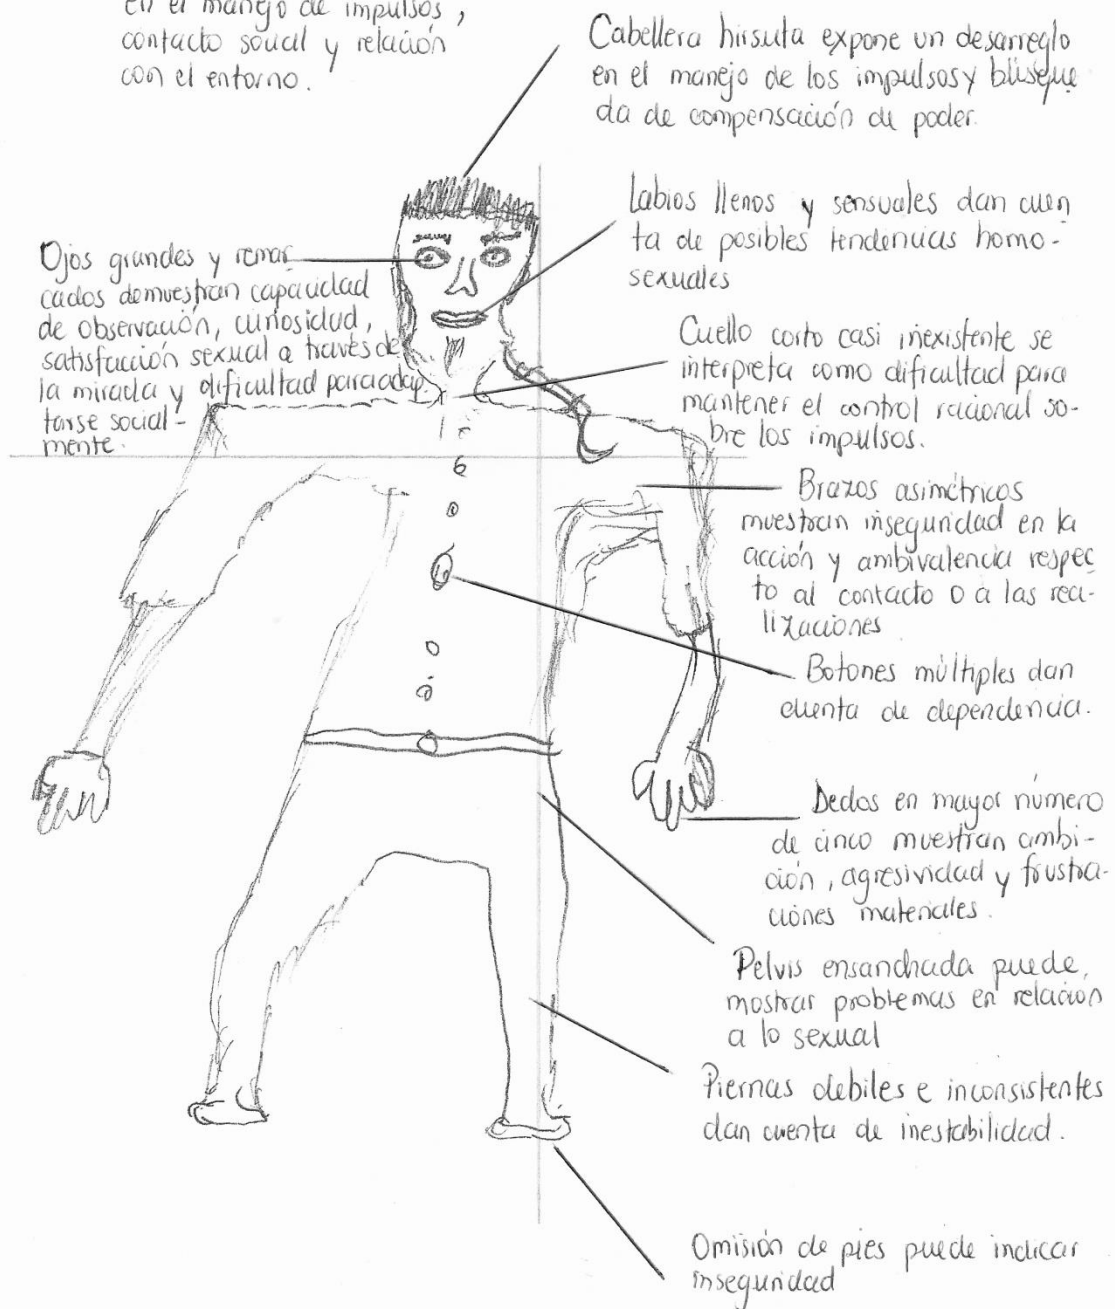 en el manejo de impulsos,
contacto social y relación
con el entorno.
Cabellera hirsuta expone un desarreglo
en el manejo de los impulsos y búsque
da de compensación de poder.
Labios llenos y sensuales dan cuen
ta de posibles tendencias homo-
sexuales
Ojos grandes y remar
cados demuestran capacidad
de observación, curiosidad,
satisfacción sexual a través de
la mirada y dificultad para adap
tarse social-
mente.
Cuello corto casi inexistente se
interpreta como dificultad para
mantener el control racional so-
bre los impulsos.
Brazos asimétricos
muestran inseguridad en la
acción y ambivalencia respec
to al contacto o a las rea-
lizaciones
Botones múltiples dan
cuenta de dependencia.
Dedos en mayor número
de cinco muestran ambi-
ción, agresividad y frustra-
ciones materiales.
Pelvis ensanchada puede,
mostrar problemas en relación
a lo sexual
Piernas debiles e inconsistentes
dan cuenta de inestabilidad.
Omisión de pies puede indicar
inseguridad